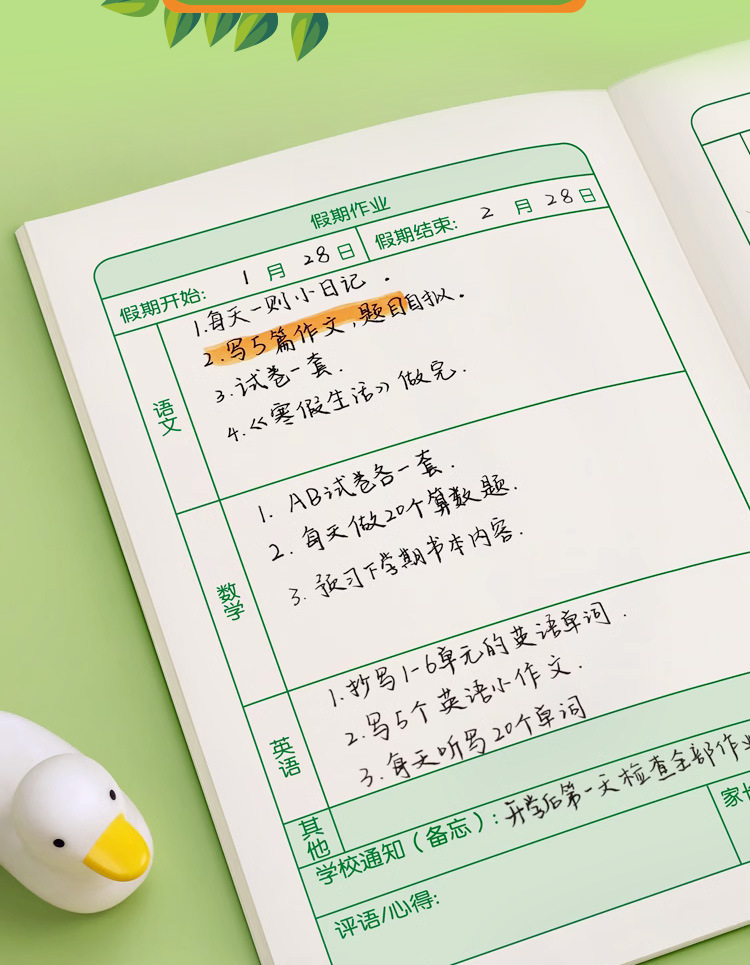 假期作业
假期开始: 1 月 28 日 假期结束: 2 月 28 日
语文
1.每天一则小日记.
2.写5篇作文,题目自拟.
3.试卷一套.
4.《寒假生活》做完.
数学
1. AB试卷各一套.
2. 每天做20个算数题.
3. 预习下学期书本内容.
英语
1.抄写1-6单元的英语单词.
2.写5个英语小作文.
3.每天听写20个单词
其他
学校通知(备忘): 开学后第一天检查全部作业
家长
评语/心得: